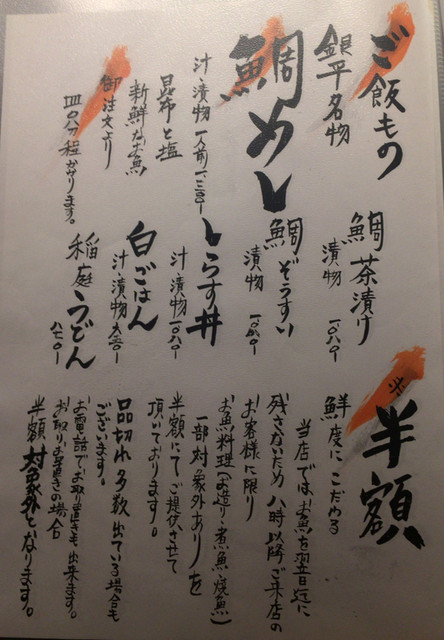 ご飯もの
銀平名物
鯛めし
汁・漬物 一人前 一、三〇〇-
昆布と塩
新鮮なお魚
御注文より
四〇分程かかります。
鯛茶漬け
漬物 一〇八〇-
鯛ぞうすい
漬物 一〇八〇-
しらす丼
汁・漬物 一〇八〇-
白ごはん
汁・漬物 六五〇-
稲庭うどん
八七〇-
半額
鮮度にこだわる
当店ではお魚を翌日に
残さないため 八時以降ご来店の
お客様に限り
お魚料理(お造り・煮魚・焼魚)
一部対象外ありを
半額にてご提供させて
頂いております。
品切れ多数出ている場合も
ございます。
お電話でお取り置きも出来ます。
お取りお置きの場合
半額対象外となります。